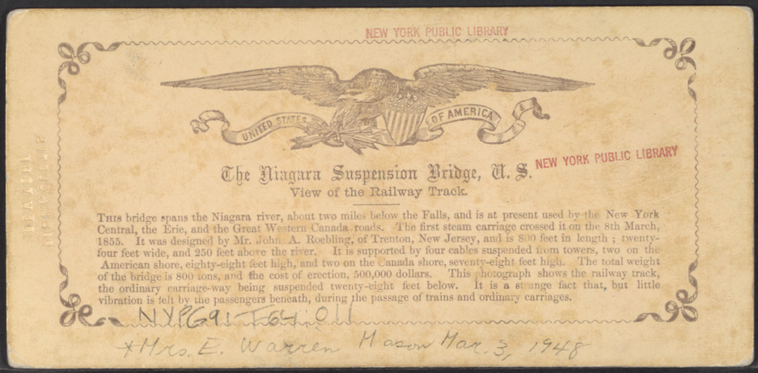 NEW YORK PUBLIC LIBRARY
UNITED STATES OF AMERICA
The Niagara Suspension Bridge, U. S.
NEW YORK PUBLIC LIBRARY
View of the Railway Track.
THIS bridge spans the Niagara river, about two miles below the Falls, and is at present used by the New York
Central, the Erie, and the Great Western Canada roads. The first steam carriage crossed it on the 8th March,
1855. It was designed by Mr. John A. Roebling, of Trenton, New Jersey, and is 800 feet in length ; twenty-
four feet wide, and 250 feet above the river. It is supported by four cables suspended from towers, two on the
American shore, eighty-eight feet high, and two on the Canada shore, seventy-eight feet high. The total weight
of the bridge is 800 tons, and the cost of erection, 500,000 dollars. This photograph shows the railway track,
the ordinary carriage-way being suspended twenty-eight feet below. It is a strange fact that, but little
vibration is felt by the passengers beneath, during the passage of trains and ordinary carriages.
NYPG91-F64 011
*Mrs. E. Warren Mason Mar. 3, 1948